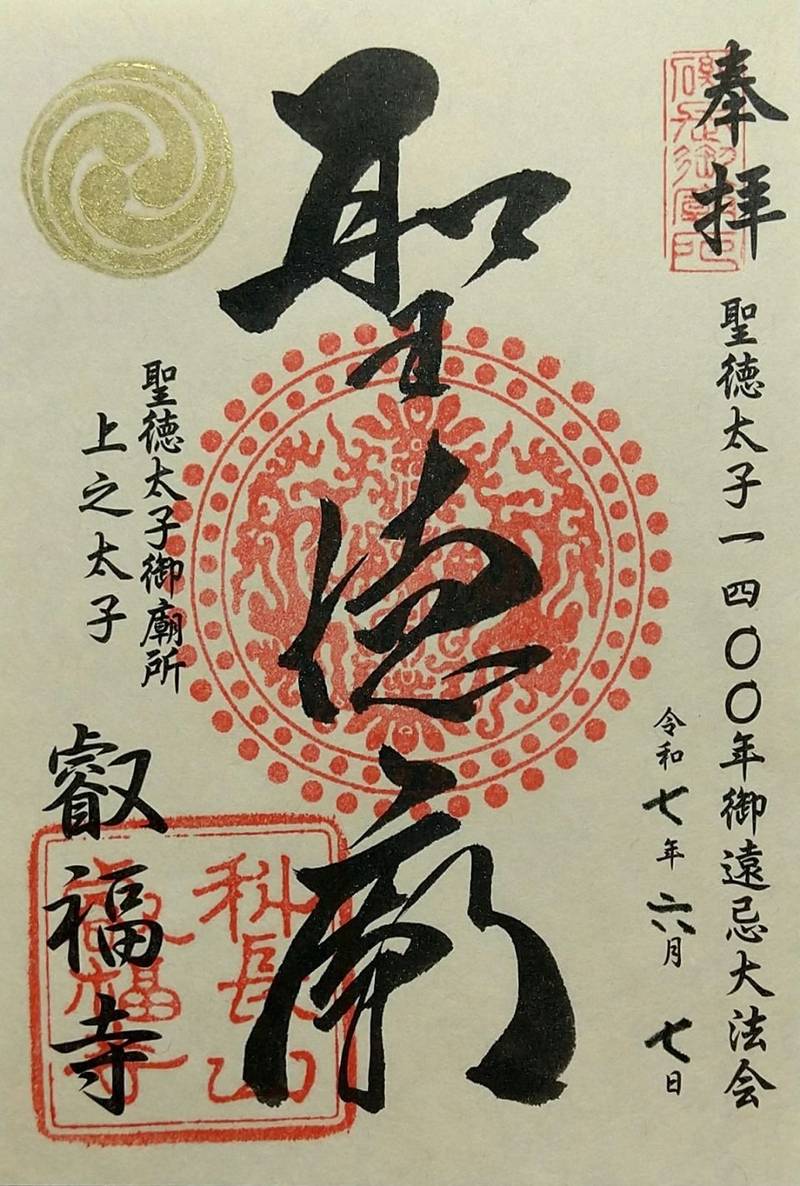 奉拝
聖徳太子一四〇〇年御遠忌大法会
令和七年六月七日
聖徳廟
聖徳太子御廟所
上之太子
叡福寺
科長山
叡福寺